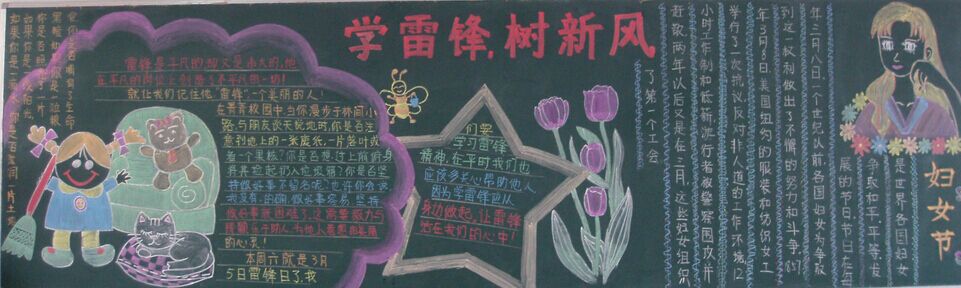 学雷锋,树新风
雷锋是平凡的却又是伟大的,他
在平凡的岗位上创造了不平凡的一切!
就让我们记住他"雷锋"一个美丽的人!
在菁菁校园中,当你漫步于林间小
路,与朋友谈天说地时,你是否注
意到地上的一张废纸,一片落叶或
者一个果核?你是否想过上前俯身
将其捡起扔入垃圾箱?你是否坚
持做好事不留名呢?也许你会说
我没有,的确,做好事容易,坚持
的心灵!
本周六就是3月
5日雷锋日了,我
们要
学习雷锋
精神,在平时我们也
应该多关心帮助他人
因为学雷锋应从
身边做起,让雷锋
活在我们的心中!
妇女节
是世界各国妇女
争取和平、平等、发
展的节日,节日在每
年三月八日,一个世纪以前,各国妇女为争取
到这一权利做出了不懈的努力和斗争,1857
年3月8日,美国纽约的服装和纺织女工
举行了一次抗议,反对非人道的工作环境,12
小时工作制和低薪,游行者被警察围攻并
赶散,两年以后又是在三月,这些妇女组织
了第一个工会